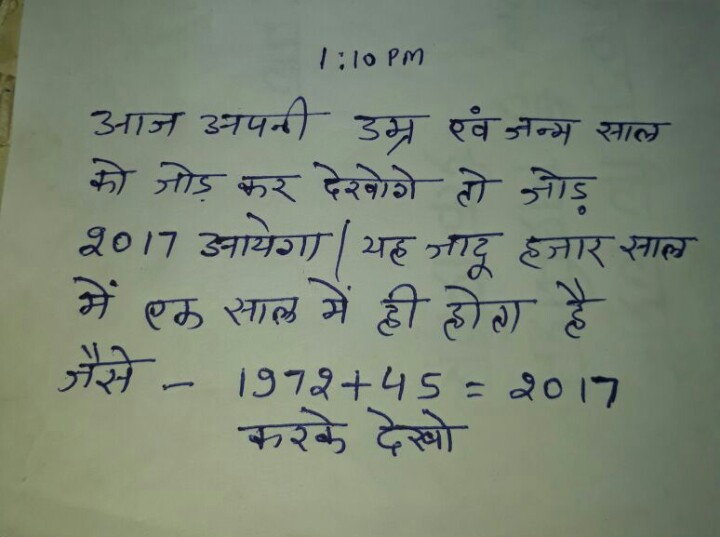 1:10 PM
आज अपनी उम्र एवं जन्म साल
को जोड़ कर देखोगे तो जोड़
2017 आयेगा | यह जादू हजार साल
में एक साल में ही होता है
जैसे - 1972+45 = 2017
करके देखो